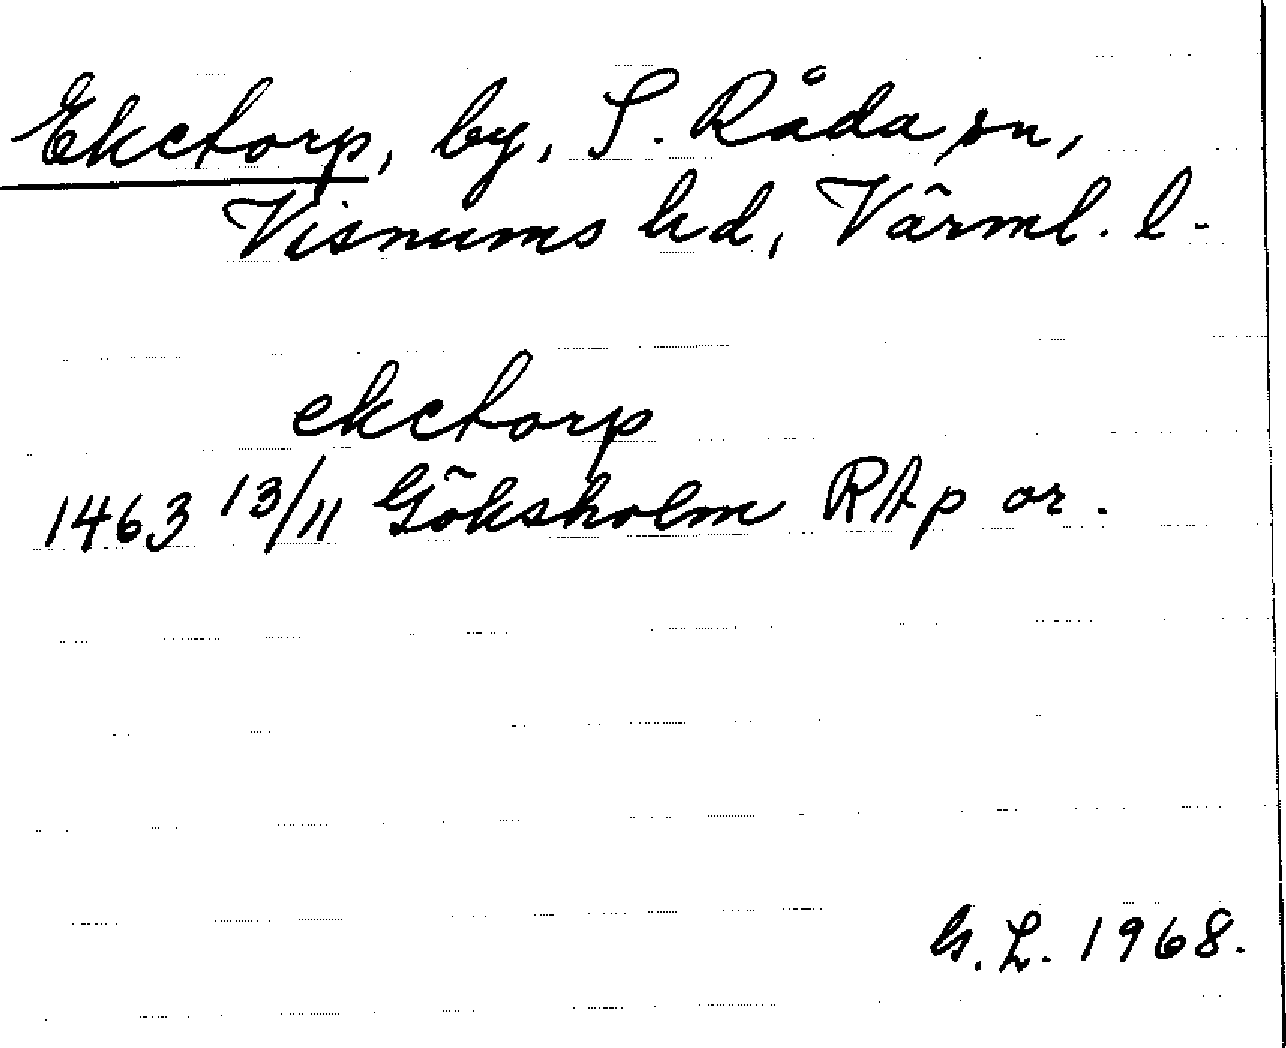 Ekctorp, by, S. Råda sn,
Visnums hd, Värml. l.
ekctorp
1463 13/11 Göksholm RAp or.
G. L. 1968.